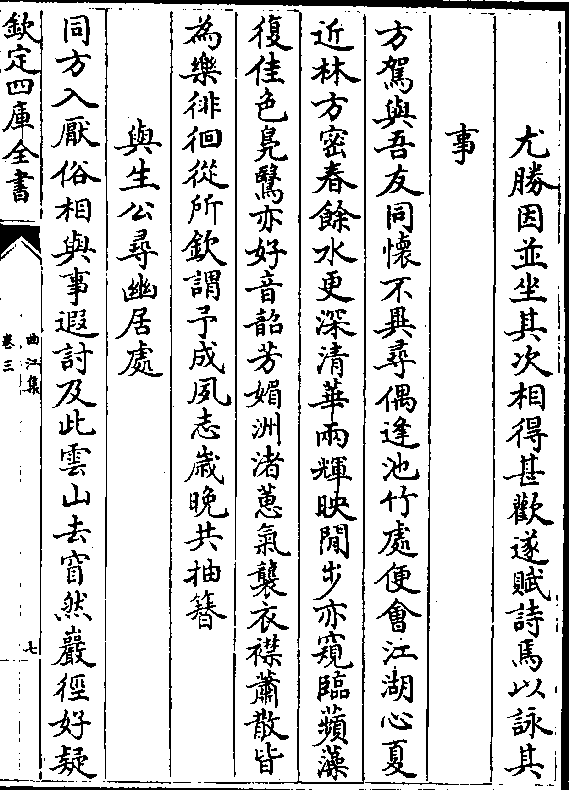 尤勝因並坐其次相得甚歡遂賦詩焉以詠其
事
方駕與吾友同懷不異尋偶逢池竹處便會江湖心夏
近林方密春餘水更深清華兩輝映閒步亦窺臨蘋藻
復佳色鳧鷖亦好音韶芳媚洲渚蕙氣襲衣襟蕭散皆
為樂徘徊從所欽謂予成夙志歲晚共抽簪
與生公尋幽居處
同方入厭俗相與事遐討及此雲山去窅然巖徑好疑
欽定四庫全書
曲江集
卷三
七